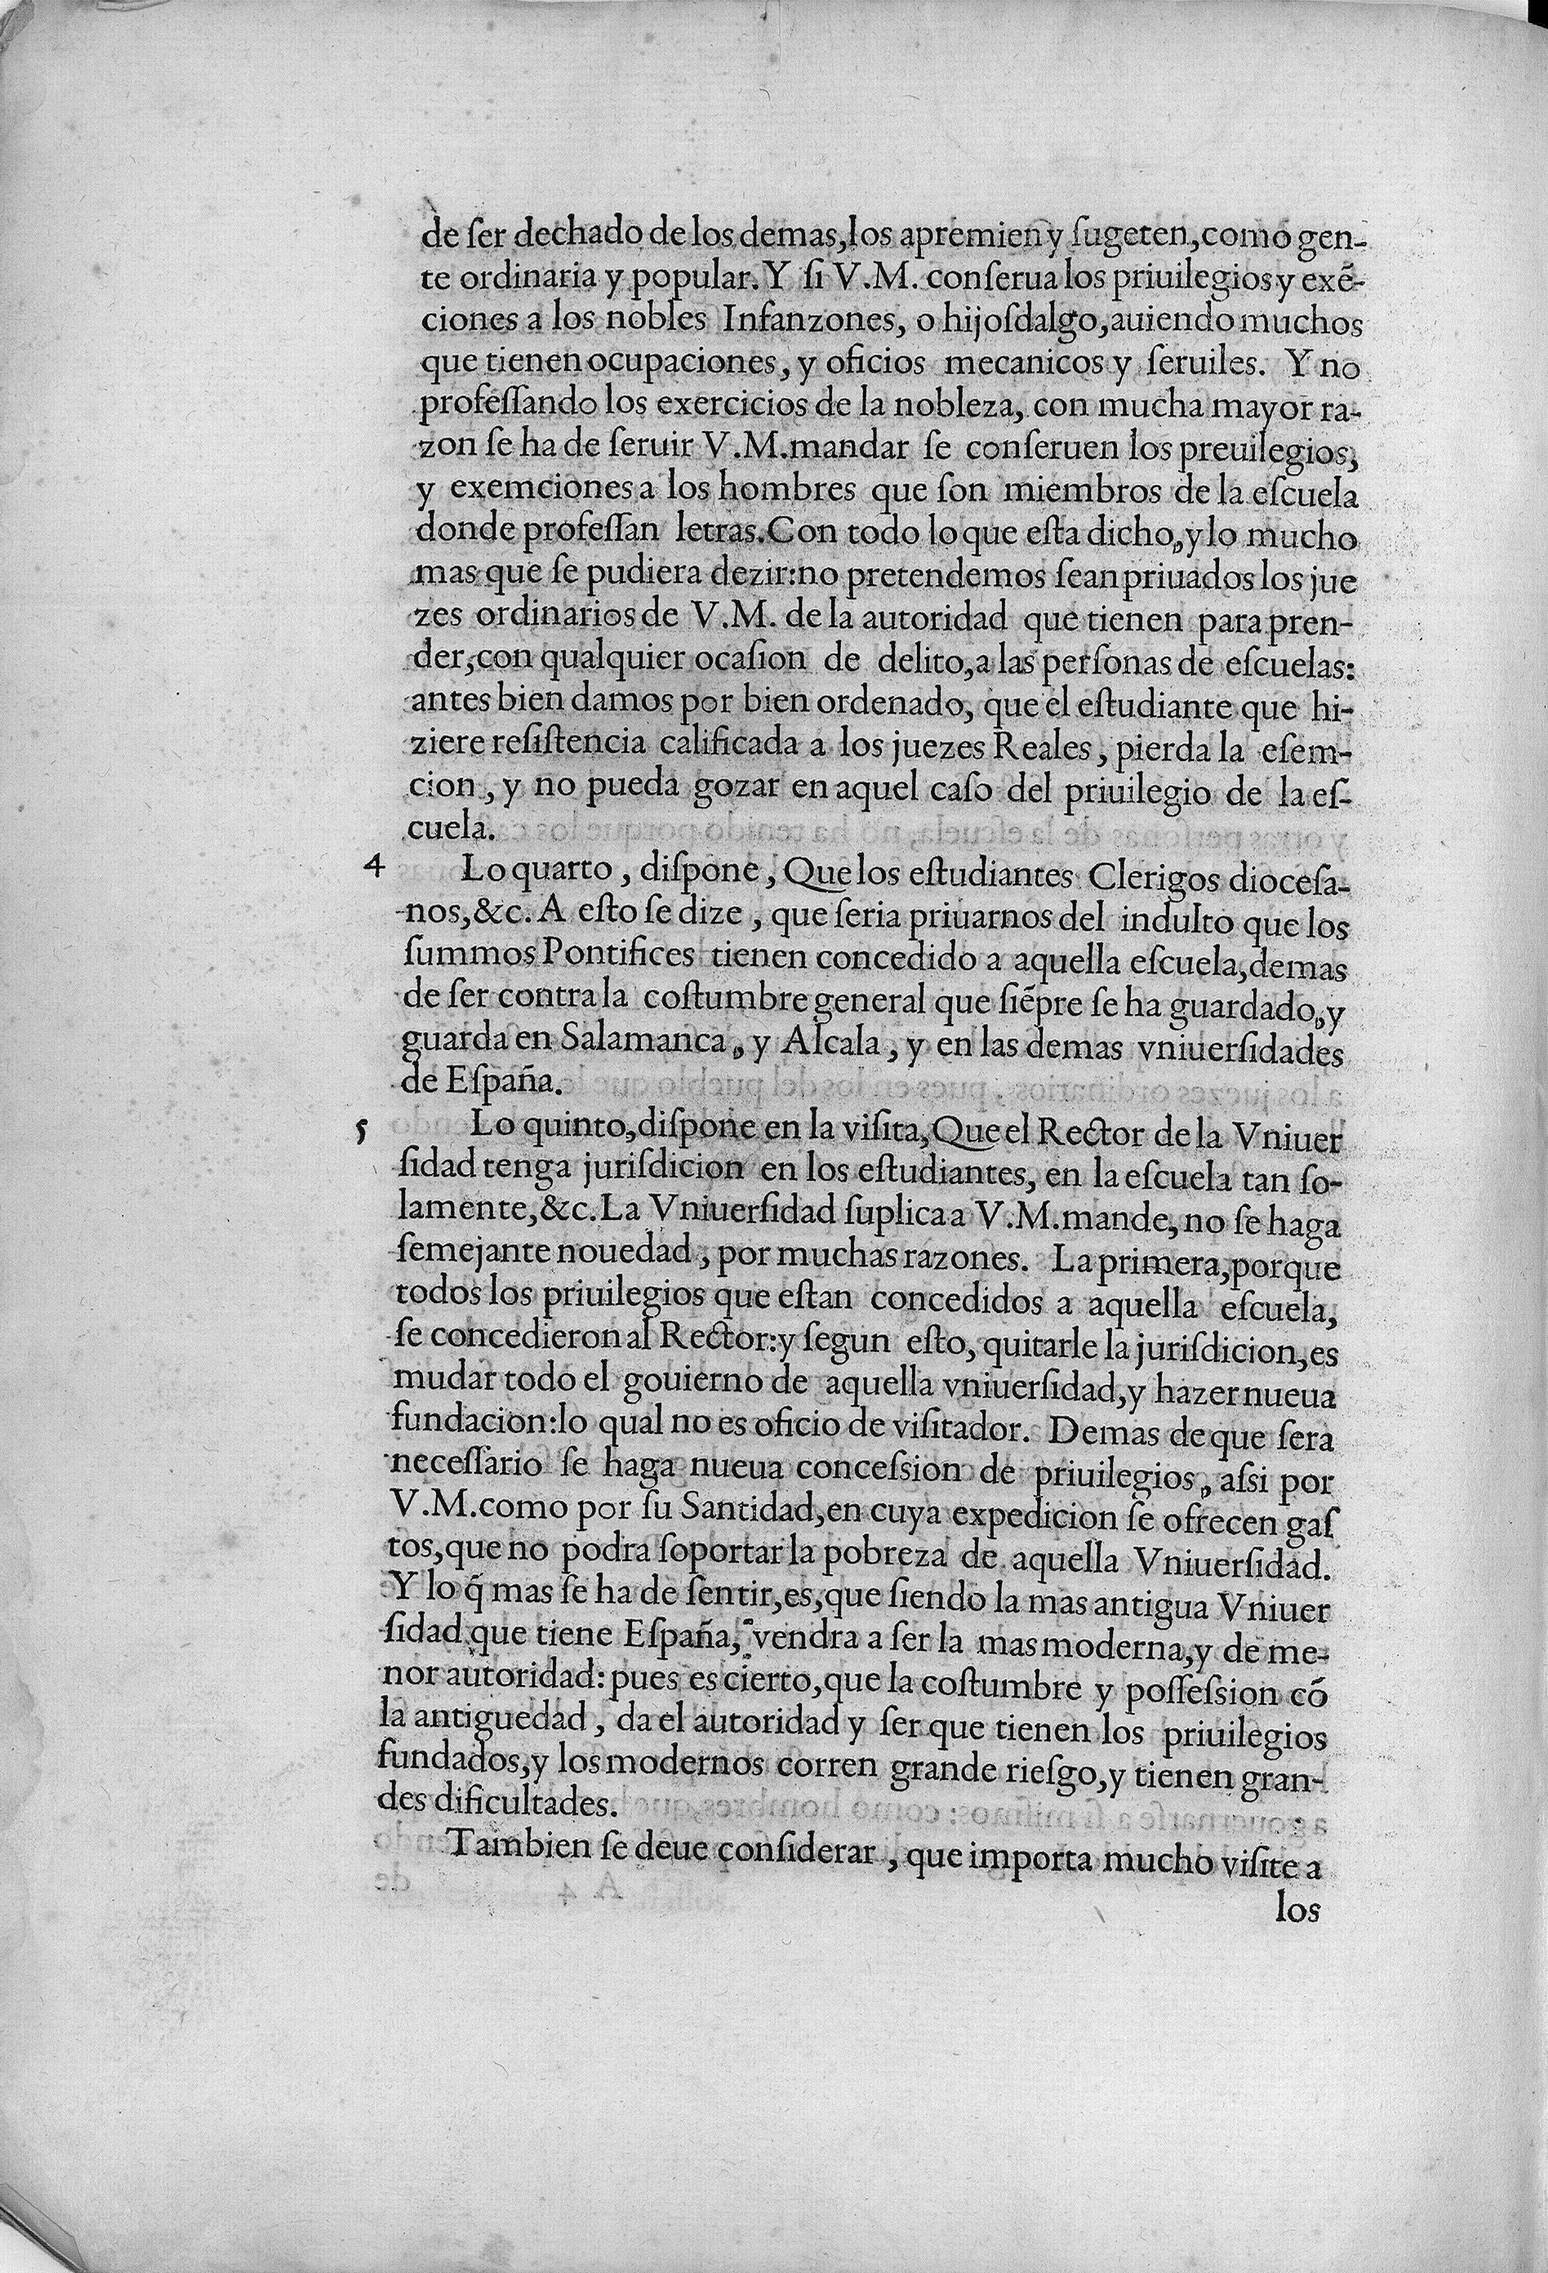 de ſer dechado de los demas, los apremien y ſugeten, como gen-
te ordinaria y popular. Y ſi V.M. conſerua los priuilegios y exẽ-
ciones a los nobles Infanzones, o hijoſdalgo, auiendo muchos
que tienen ocupaciones, y oficios mecanicos y ſeruiles. Y no
profeſſando los exercicios de la nobleza, con mucha mayor ra-
zon ſe ha de ſeruir V.M. mandar ſe conſeruen los preuilegios,
y exemciones a los hombres que ſon miembros de la eſcuela
donde profeſſan letras. Con todo lo que eſta dicho, y lo mucho
mas que ſe pudiera dezir: no pretendemos ſean priuados los jue
zes ordinarios de V.M. de la autoridad que tienen para pren-
der, con qualquier ocaſion de delito, a las perſonas de eſcuelas:
antes bien damos por bien ordenado, que el eſtudiante que hi-
ziere reſiſtencia calificada a los juezes Reales, pierda la eſem-
cion, y no pueda gozar en aquel caſo del priuilegio de la eſ-
cuela.
4 Lo quarto, diſpone, Que los eſtudiantes Clerigos dioceſa-
nos, &c. A eſto ſe dize, que ſeria priuarnos del indulto que los
ſummos Pontifices tienen concedido a aquella eſcuela, demas
de ſer contra la coſtumbre general que ſiẽpre ſe ha guardado, y
guarda en Salamanca, y Alcala, y en las demas vniuerſidades
de Eſpaña.
5 Lo quinto, diſpone en la viſita, Que el Rector de la Vniuer
ſidad tenga juriſdicion en los eſtudiantes, en la eſcuela tan ſo-
lamente, &c. La Vniuerſidad ſuplica a V.M. mande, no ſe haga
ſemejante nouedad, por muchas razones. La primera, porque
todos los priuilegios que eſtan concedidos a aquella eſcuela,
ſe concedieron al Rector: y ſegun eſto, quitarle la juriſdicion, es
mudar todo el gouierno de aquella vniuerſidad, y hazer nueua
fundacion: lo qual no es oficio de viſitador. Demas de que ſera
neceſſario ſe haga nueua conceſsion de priuilegios, aſsi por
V.M. como por ſu Santidad, en cuya expedicion ſe ofrecen gaſ
tos, que no podra ſoportar la pobreza de aquella Vniuerſidad.
Y lo q̃ mas ſe ha de ſentir, es, que ſiendo la mas antigua Vniuer
ſidad que tiene Eſpaña, vendra a ſer la mas moderna, y de me-
nor autoridad: pues es cierto, que la coſtumbre y poſſeſsion cõ
la antiguedad, da el autoridad y ſer que tienen los priuilegios
fundados, y los modernos corren grande rieſgo, y tienen gran-
des dificultades.
Tambien ſe deue conſiderar, que importa mucho viſite a
los